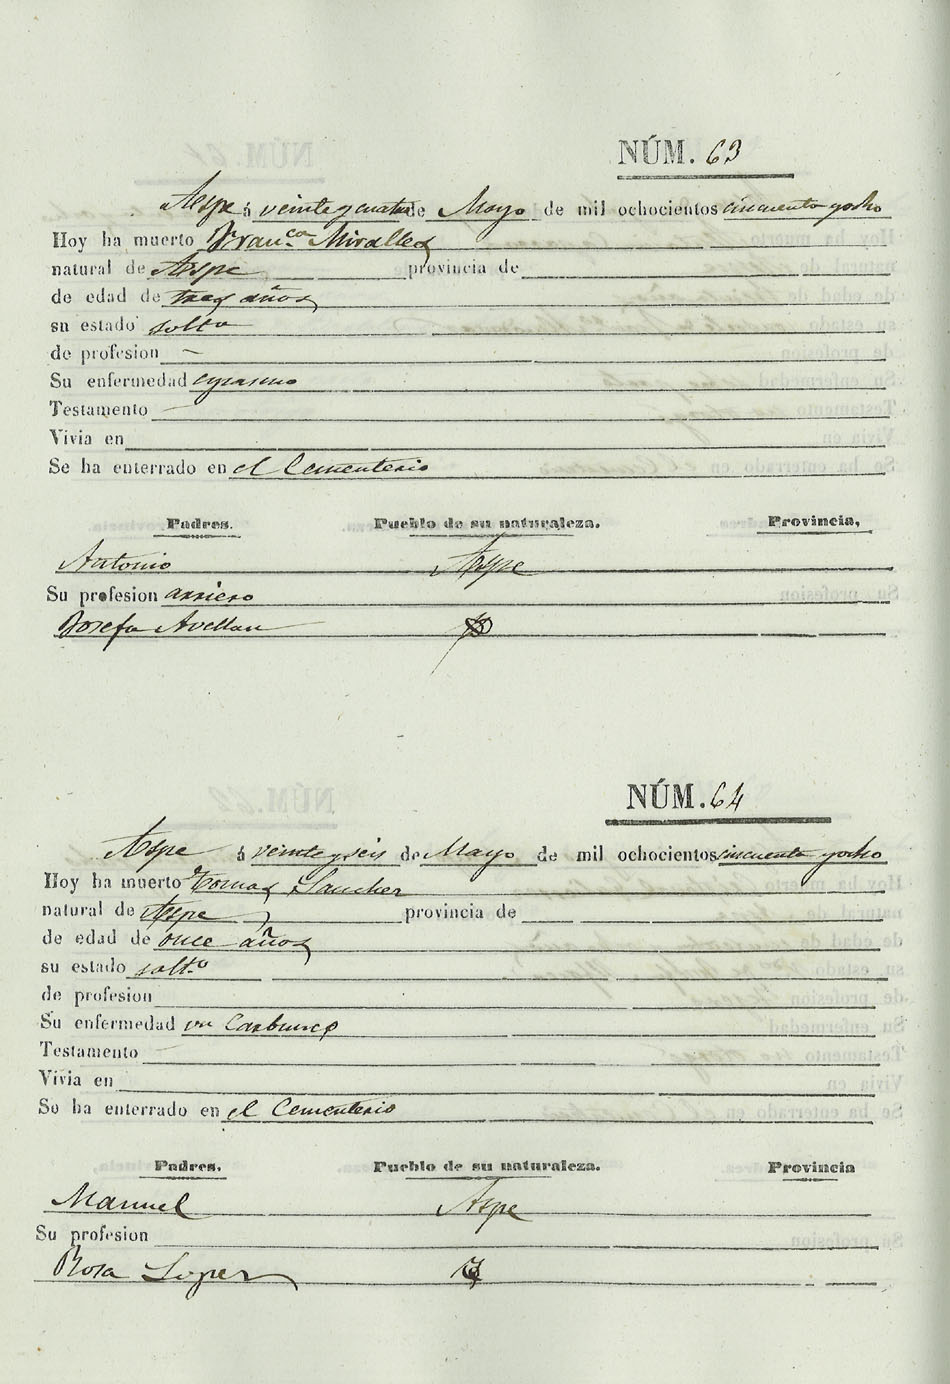 NÚM. 63
Aspe á veinte y cuatro de Mayo de mil ochocientos cincuenta y ocho
Hoy ha muerto Fran.ca Miralles
natural de Aspe provincia de
de edad de tres años
su estado solta
de profesion —
Su enfermedad
Testamento —
Vivia en
Se ha enterrado en el Cementerio
Padres. Pueblo de su naturaleza. Provincia,
Antonio Aspe
Su profesion arriero
Josefa Avellan
NÚM. 64
Aspe á veinte y seis de Mayo de mil ochocientos cincuenta y ocho
Hoy ha muerto Tomas Sanchez
natural de Aspe provincia de
de edad de once años
su estado solt.o
de profesion
Su enfermedad un Carbunco
Testamento —
Vivia en
Se ha enterrado en el Cementerio
Padres. Pueblo de su naturaleza. Provincia
Manuel Aspe
Su profesion
Rosa Lopez